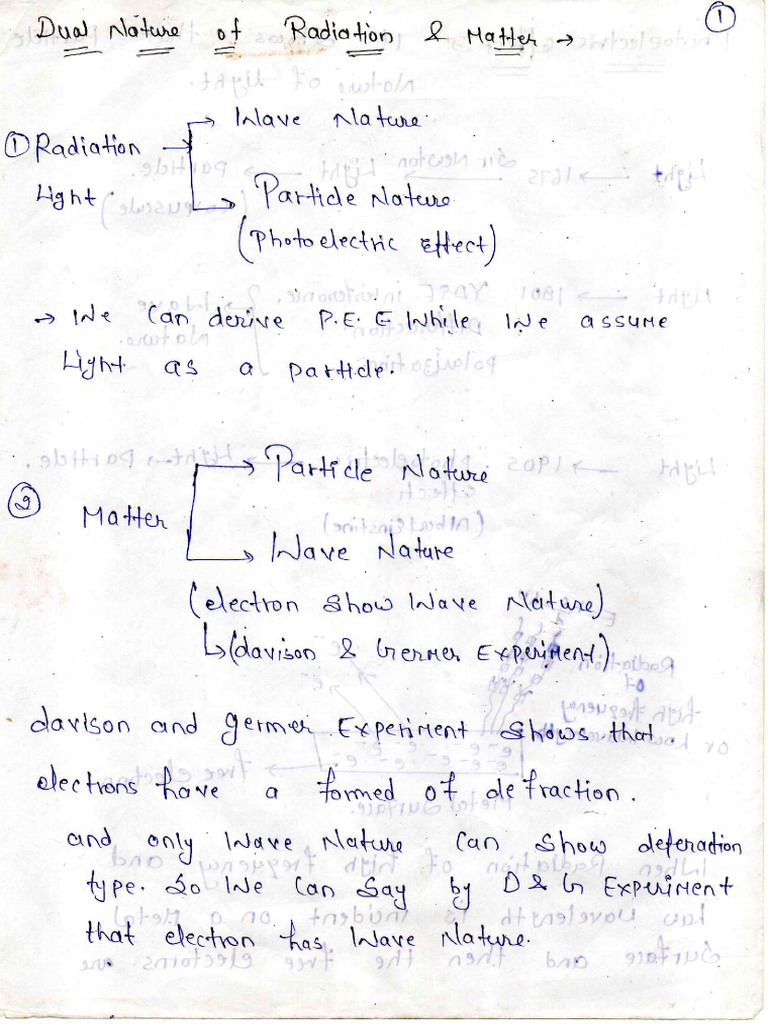 ①
Dual Nature of Radiation & Matter →
① Radiation → Wave Nature
Light → Particle Nature
(Photoelectric Effect)
→ We can derive P.E.E While We assume
Light as a particle.
② Matter → Particle Nature
→ Wave Nature
(electron show Wave Nature)
↳ (davison & Germer Experiment)
davison and germer Experiment shows that
electrons have a formed of defraction.
and only Wave Nature can show deferaction
type. So We can say by D & G Experiment
that electron has Wave Nature.